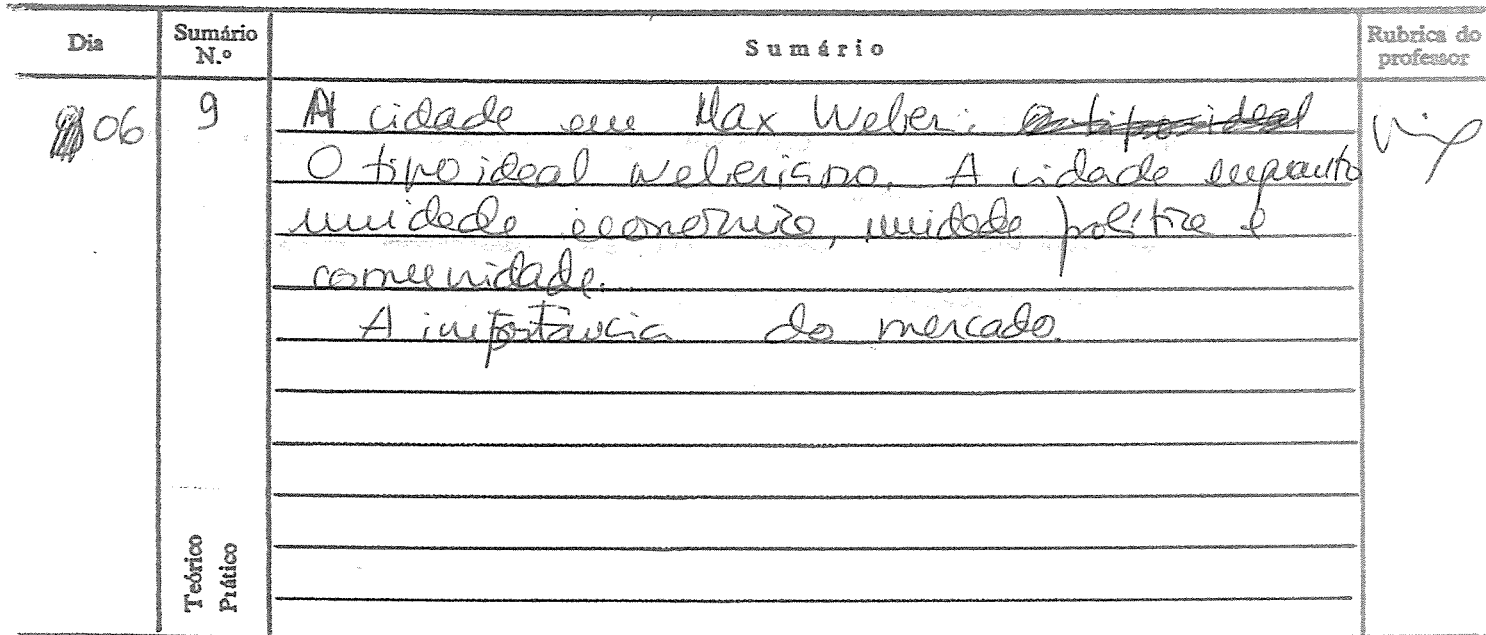 Dia
Sumário N.º
Sumário
Rubrica do professor
06
9
A cidade em Max Weber.
O tipo ideal weberiano. A cidade enquanto
unidade económica, unidade política e
comunidade.
A importância do mercado.
Teórico
Prático